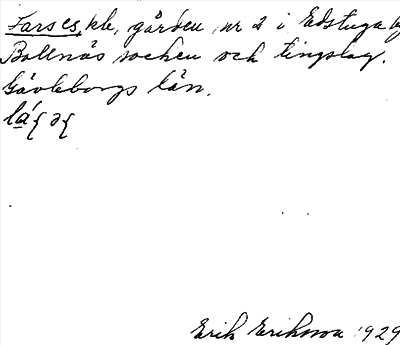 Larses, kle, gården nr 2 i Edstuga by
Bollnäs socken och tingslag.
Gävleborgs län.
Erik Eriksson 1929